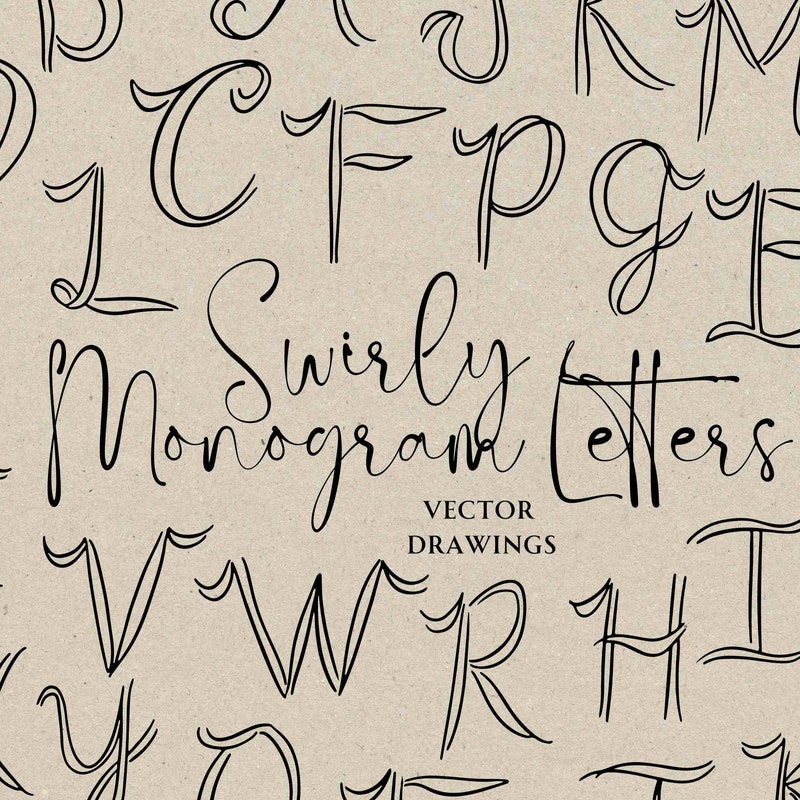 B A J K M
C F P G E
L
Swirly
Monogram Letters
VECTOR
DRAWINGS
V W R H I
Y O